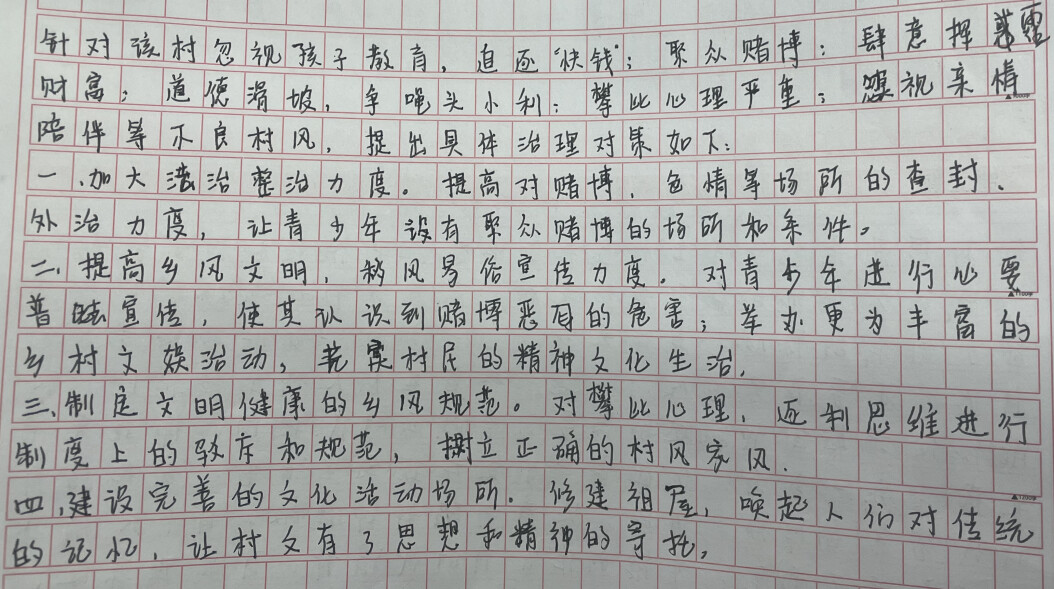 针对该村忽视孩子教育，追逐“快钱”；聚众赌博；肆意挥霍
财富；道德滑坡，争蝇头小利；攀比心理严重；忽视亲情
陪伴等不良村风，提出具体治理对策如下：
一、加大法治整治力度。提高对赌博、色情等场所的查封、
处治力度，让青少年没有聚众赌博的场所和条件。
二、提高乡风文明，移风易俗宣传力度。对青少年进行必要
普法宣传，使其认识到赌博恶习的危害；举办更为丰富的
乡村文娱活动，充实村民的精神文化生活，
三、制定文明健康的乡风规范。对攀比心理，逐利思维进行
制度上的驳斥和规范，树立正确的村风家风.
四、建设完善的文化活动场所。修建祖屋，唤起人们对传统
的记忆，让村女有了思想和精神的寄托，